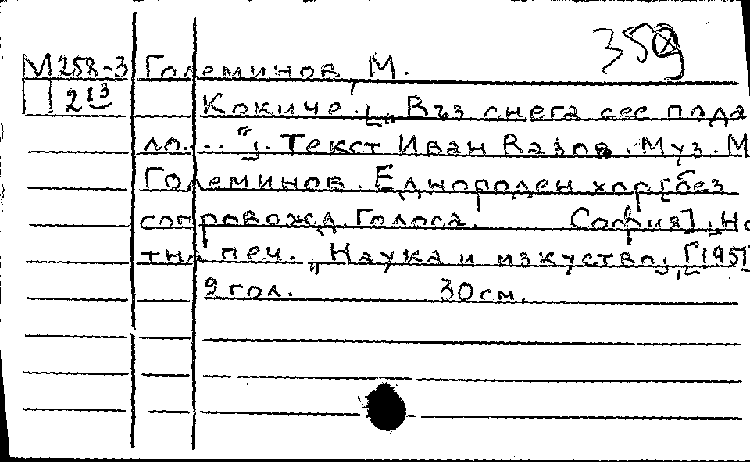 359
М258-3 Големинов, М.
213 Кокиче. [„Въз снега се е пода-
ло...“]. Текст Иван Вазов. Муз. М.
Големинов. Еднороден хор [без
сопровожд. Голоса. София], „Но
тна печ. „Наука и изкуство“, [1951]
2 гол. 30 см.